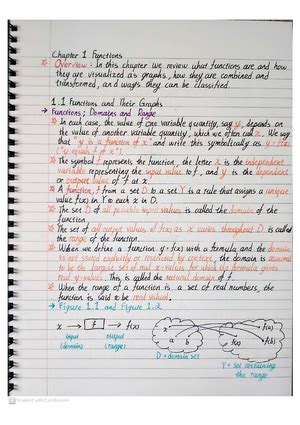 Chapter 1 Functions
* Overview: In this chapter we review what functions are and how
they are visualized as graphs, how they are combined and
transformed, and ways they can be classified.
1.1 Functions and Their Graphs
→ Functions; Domains and Range
* In each case, the value of one variable quantity, say y, depends on
the value of another variable quantity, which we often call x. We say
that "y is a function of x" and write this symbolically as y = f(x)
("y equals f of x").
* The symbol f represents the function, the letter x is the independent
variable representing the input value to f, and y is the dependent
or output value of f at x.
* A function f from a set D to a set Y is a rule that assigns a unique
value f(x) in Y to each x in D.
* The set D of all possible input values is called the domain of the
function.
* The set of all output values of f(x) as x varies throughout D is called
the range of the function.
* When we define a function y = f(x) with a formula and the domain
is not stated explicitly or restricted by context, the domain is assumed
to be the largest set of real x-values for which the formula gives
real y-values. This is called the natural domain of f.
* When the range of a function is a set of real numbers, the
function is said to be real valued.
→ Figure 1.1 and Figure 1.2
x → f → f(x)
input output
(domain) (range)
x a f(x) f(a)
D = domain set
Y = set containing
the range
Scanned with CamScanner